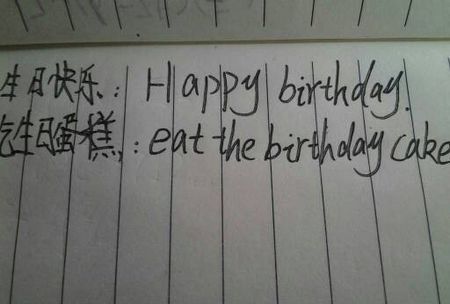 生日快乐.: Happy birthday.
吃生日蛋糕.: eat the birthday cake